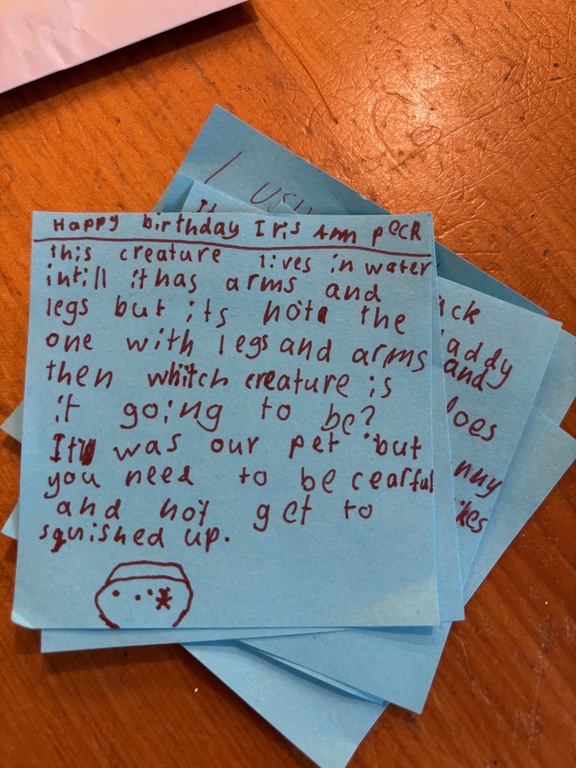 I usu
It
Happy birthday Iris Ann pecR
this creature lives in water
intill it has arms and
legs but its note the
one with legs and arms
then whitch creature is
it going to be?
It was our pet but
you need to be cearful
and not get to
squished up.
ck
addy
and
loes
nny
kes